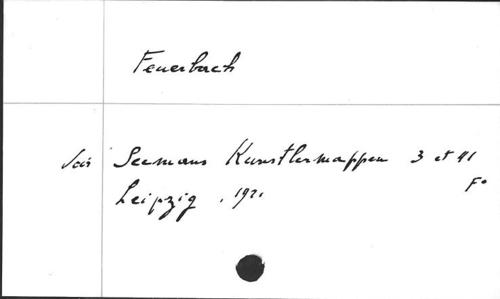 Feuerbach
Voir Seemans Kunstlermappen 3 et 41
Leipzig, 1921 Fo